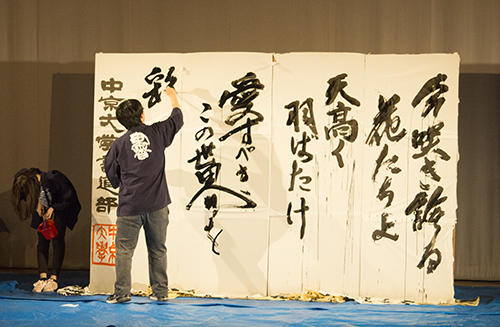 今咲き誇る
花たちよ
天高く
羽ばたけ
愛すべき
この世界を
彩
中京大学書道部
中京
大学